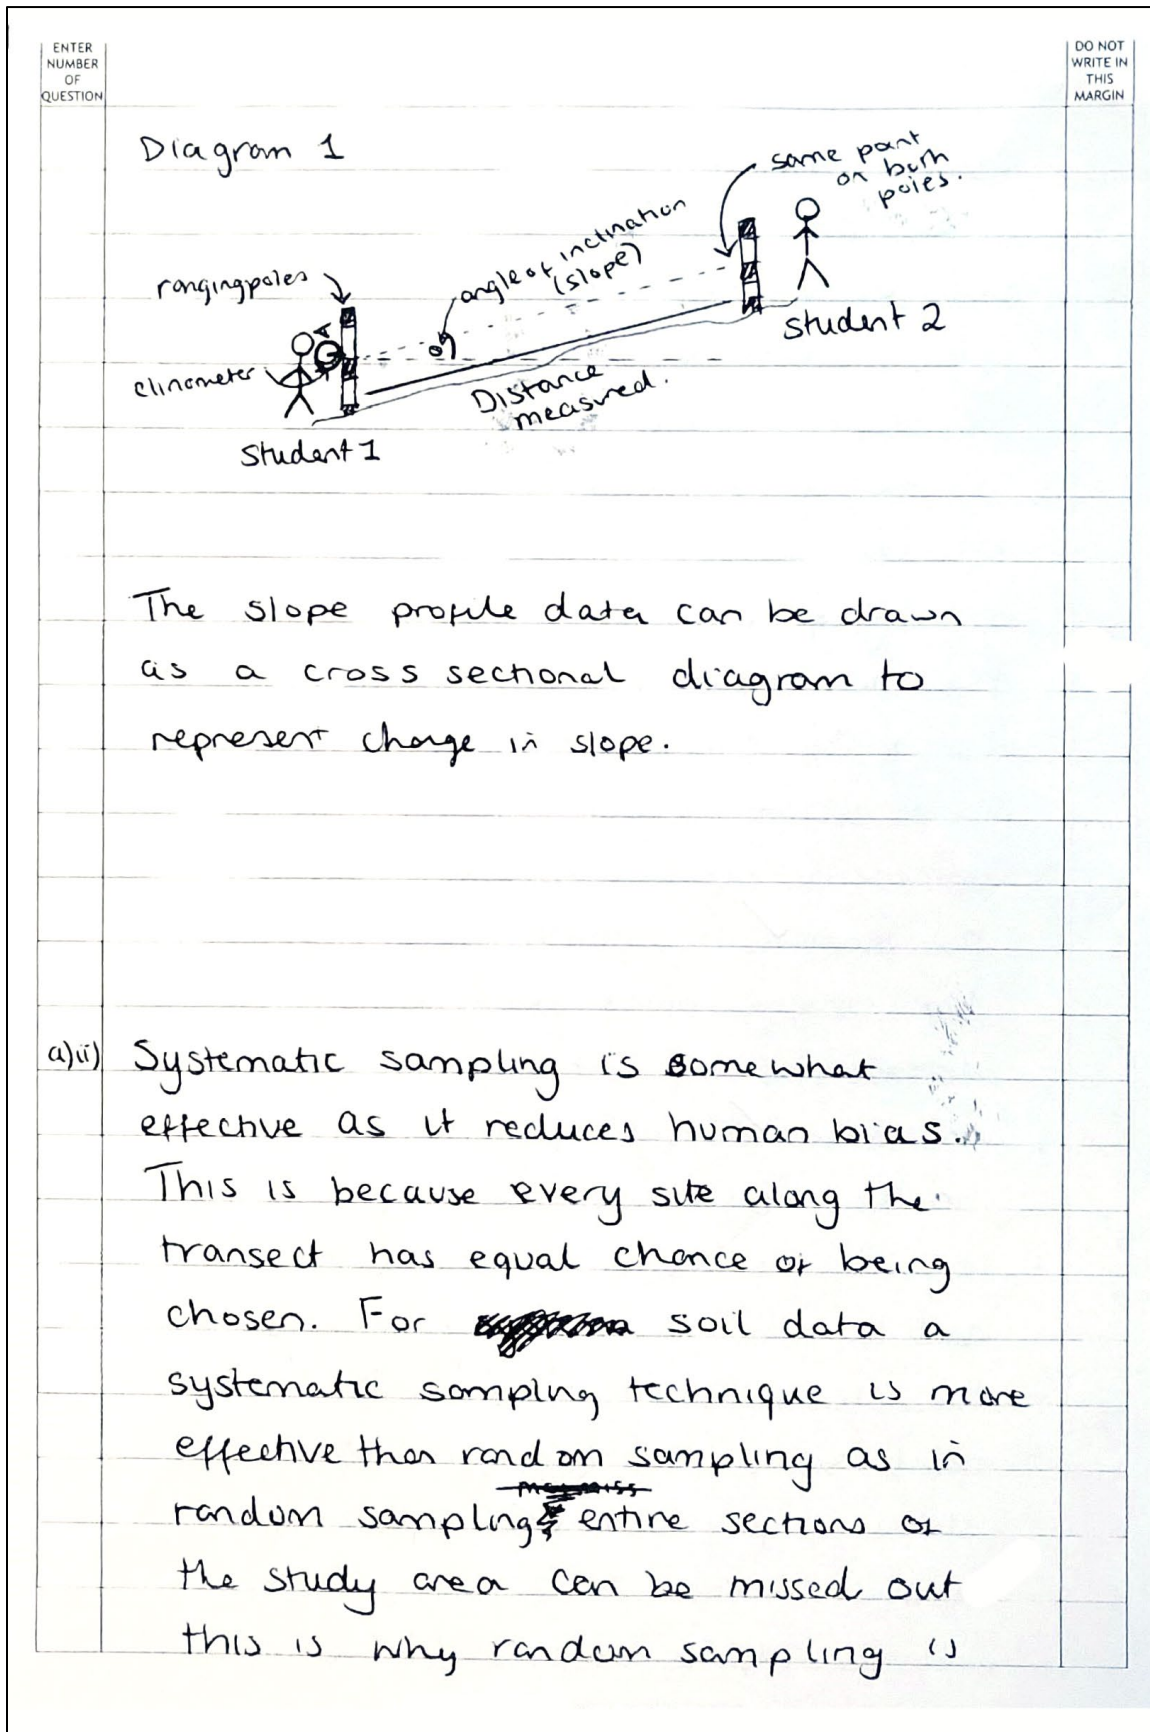 ENTER
NUMBER
OF
QUESTION
DO NOT
WRITE IN
THIS
MARGIN
Diagram 1
same point
on both
poles.
angle of inclination
(slope)
ranging poles
clinometer
Student 2
Distance
measured.
Student 1
The slope profile data can be drawn
as a cross sectional diagram to
represent change in slope.
a)ii) Systematic sampling is somewhat
effective as it reduces human bias.
This is because every site along the
transect has equal chance of being
chosen. For soil data a
systematic sampling technique is more
effective than random sampling as in
random sampling entire sections of
the study area can be missed out
this is why random sampling is